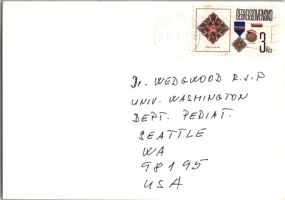 ČESKOSLOVENSKO
3 Kčs
Dr. WEDGWOOD R.J.P
UNIV. WASHINGTON
DEPT. PEDIAT.
SEATTLE
WA
98195
USA